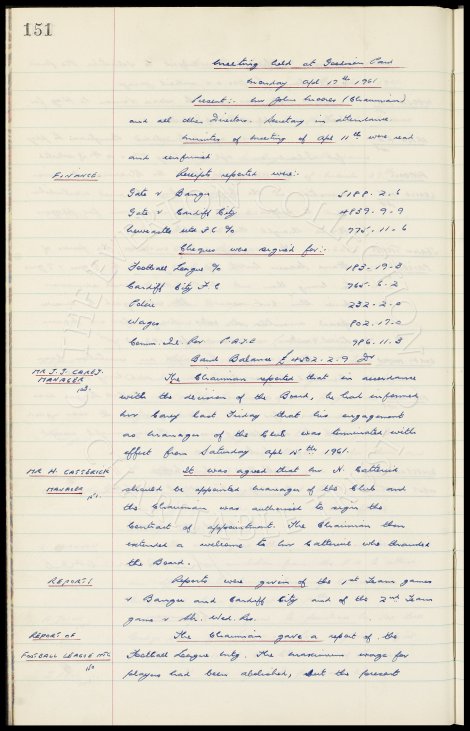 151
Meeting held at Goodison Park
Monday Apl 17th 1961
Present:- Mr John Moores (Chairman)
and all other Directors. Secretary in attendance.
Minutes of Meeting of Apl 11th were read
and confirmed
FINANCE Receipts reported were:-
Gate v Bangu 5188-2-6
Gate v Cardiff City 4839-9-9
Newcastle Utd F.C. 775-11-6
Cheques were signed for:-
Football League 183-19-3
Cardiff City F.C 765-6-2
Police 232-2-0
Wages 802-17-0
Comm. Inl. Rev P.A.Y.E 986-11-3
Bank Balance £4502-2-9 Dr
MR J.J. CAREY. The Chairman reported that in accordance
MANAGER with the decision of the Board, he had informed
Mr Carey last Friday that his engagement
as Manager of the Club was terminated with
effect from Saturday Apl 15th 1961.
MR H. CATTERICK It was agreed that Mr H. Catterick
MANAGER should be appointed Manager of the Club and
the Chairman was authorised to sign the
Contract of appointment. The Chairman then
extended a welcome to Mr Catterick who thanked
the Board.
REPORTS Reports were given of the 1st Team games
v Bangu and Cardiff City and of the 2nd Team
game v Sh. Wed. Res.
REPORT OF The Chairman gave a report of the
FOOTBALL LEAGUE MTG Football League Mtg. The maximum wage for
players had been abolished, but the present
THE EVERTON COLLECTION